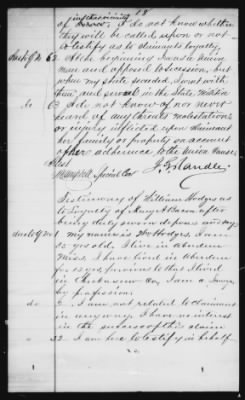 18
insincerity
of . I do not know whether
they will be called upon or not
to testify as to claimants loyalty.
62 At the beginning I was a Union
man and opposed to secession, but
when my state seceded, I went with
them, and served in the State Militia
do 63 I do not know of nor never
heard of any threats molestations
or injury inflicted upon claimant
her family or property on account
of her adherence to the Union Cause.
Attest
Special Com
Testimony of William Hodges as
to loyalty of Mary A. Bacon after
being duly sworn deposes and says
1 my name is Wm Hodges. I am
52 yrs old. I live in Aberdeen
Miss I have lived in Aberdeen
for 12 yrs previous to that I lived
in Chickasaw Co, I am a Lawyer
by profession.
do 2. I am not related to claimant
in any way. I have no interest
in the success of this claim
22. I am here to testify in behalf